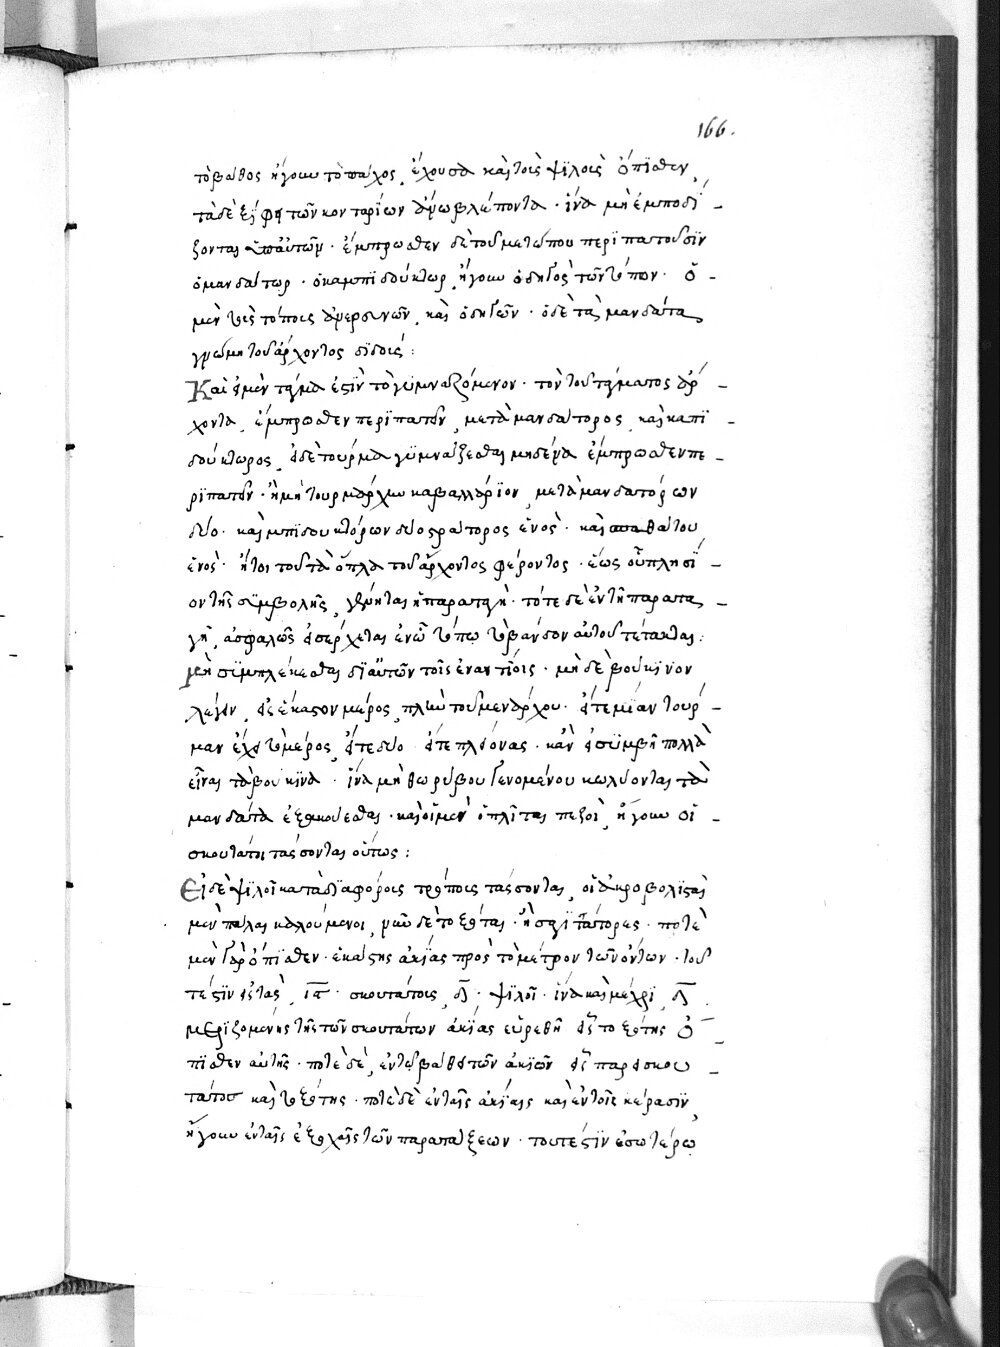 166.
τὸ βάθος ἤγουν τὸ πάχος, ἔχουσα καὶ τοὺς ψϊλοὺς ὄπϊσθεν,
τὰ δὲ ξίφη τῶν κονταρίων ἄνω βλέποντα · ἵνα μὴ ἐμποδί-
ζονται ὑπ' αὐτῶν · ἔμπρωσθεν δὲ τοῦ μετώπου περϊπατοῦσϊν
ὁ μανδάτωρ · ὁ καμπϊδούκτωρ, ἤγουν ὁ δηγὸς τῶν τόπων · ὁ
μὲν τοὺς τόπους ἀνερευνῶν, καὶ ὁδηγῶν · ὁ δὲ τὰ μανδάτα
γνώμη τοῦ ἄρχοντος διδούς :
Καὶ εἰ μὲν τάγμα ἐστὶν τὸ γϋμναζόμενον · τὸν τοῦ τάγματος ἄρ-
χοντα, ἔμπρωσθεν περϊπατεῖν, μετὰ μανδάτορος, καὶ καπϊ-
δούκτωρος, εἰ δὲ τούρμα γϋμνάζεσθαι μηδένα ἔμπρωσθεν πε-
ρϊπατεῖν · ἢ μὴ τουρμάρχην καβαλλάρϊον, μετὰ μανδατόρων
δύο · καὶ μπϊδουκτόρων δύο στράτορος ἑνὸς · καὶ σπαθαίου
ἑνὸς · ἤτοι τοῦ τὰ ὅπλα τοῦ ἄρχοντος φέροντος · ἕως οὗ πλησί-
ον τῆς συμβολῆς, γένηται ἡ παραταγὴ · τότε δὲ ἐν τῇ παρατα-
γῇ, ἀσφαλῶς εἰσέρχεται ἐν ᾧ τόπω τὸ βάνδον αὐτοῦ τέτακται :
μὴ συμπλέκεσθαι δϊ' αὐτῶν τοῖς ἐναντίοις · μὴ δὲ βούκϊνον
λέγειν, εἰς ἕκαστον μέρος, πλὴν τοῦ μενάρχου · εἴτε μίαν τούρ-
μαν ἔχει τὸ μέρος, εἴτε δύο εἴτε πλείονας · κἂν εἰ σϋμβῆ πολλὰ
εἶναι τὰ βούκϊνα · ἵνα μὴ θωρύβου γενομένου κωλύονται τὰ
μανδάτα ἐξακούεσθαι · καὶ οἱ μὲν ὁπλῖται πεζοὶ, ἤγουν οἱ -
σκουτάτοι τάσσονται οὕτως :
Εἰ δὲ ψϊλοῖ κατὰ δϊαφόροις τρόποις τάσσονται, οἱ ἀκροβολϊσταὶ
μὲν πάλαι καλούμενοι, νῦν δὲ τοξόται · ἢ σαγϊτάτορες · ποτὲ
μὲν γὰρ ὄπϊσθεν · ἑκάστης ἀκϊας πρὸς τὸ μέτρον τῶν ὄντων · τοῦ
τέστϊν εἰς τὰς, ιϛ · σκουτάτους, δ · ψϊλοῖ · ἵνα καὶ μέχρϊ, δ
μερϊζομένης τῆς τῶν σκουτάτων ἀκίας εὑρεθῆ εἷς τοξότης ὄ-
πϊσθεν αὐτῆς · ποτὲ δὲ, ἐν τῶ βάθει τῶν ἀκϊῶν εἷς παρὰ σκου-
τάτου καὶ τοξότης · ποτὲ δὲ ἐν ταῖς ἀκίαις καὶ ἐν τοῖς κέρασϊν,
ἤγουν ἐν ταῖς ἐξοχαῖς τῶν παρατάξεων · τουτέστϊν ἐσωτέρω